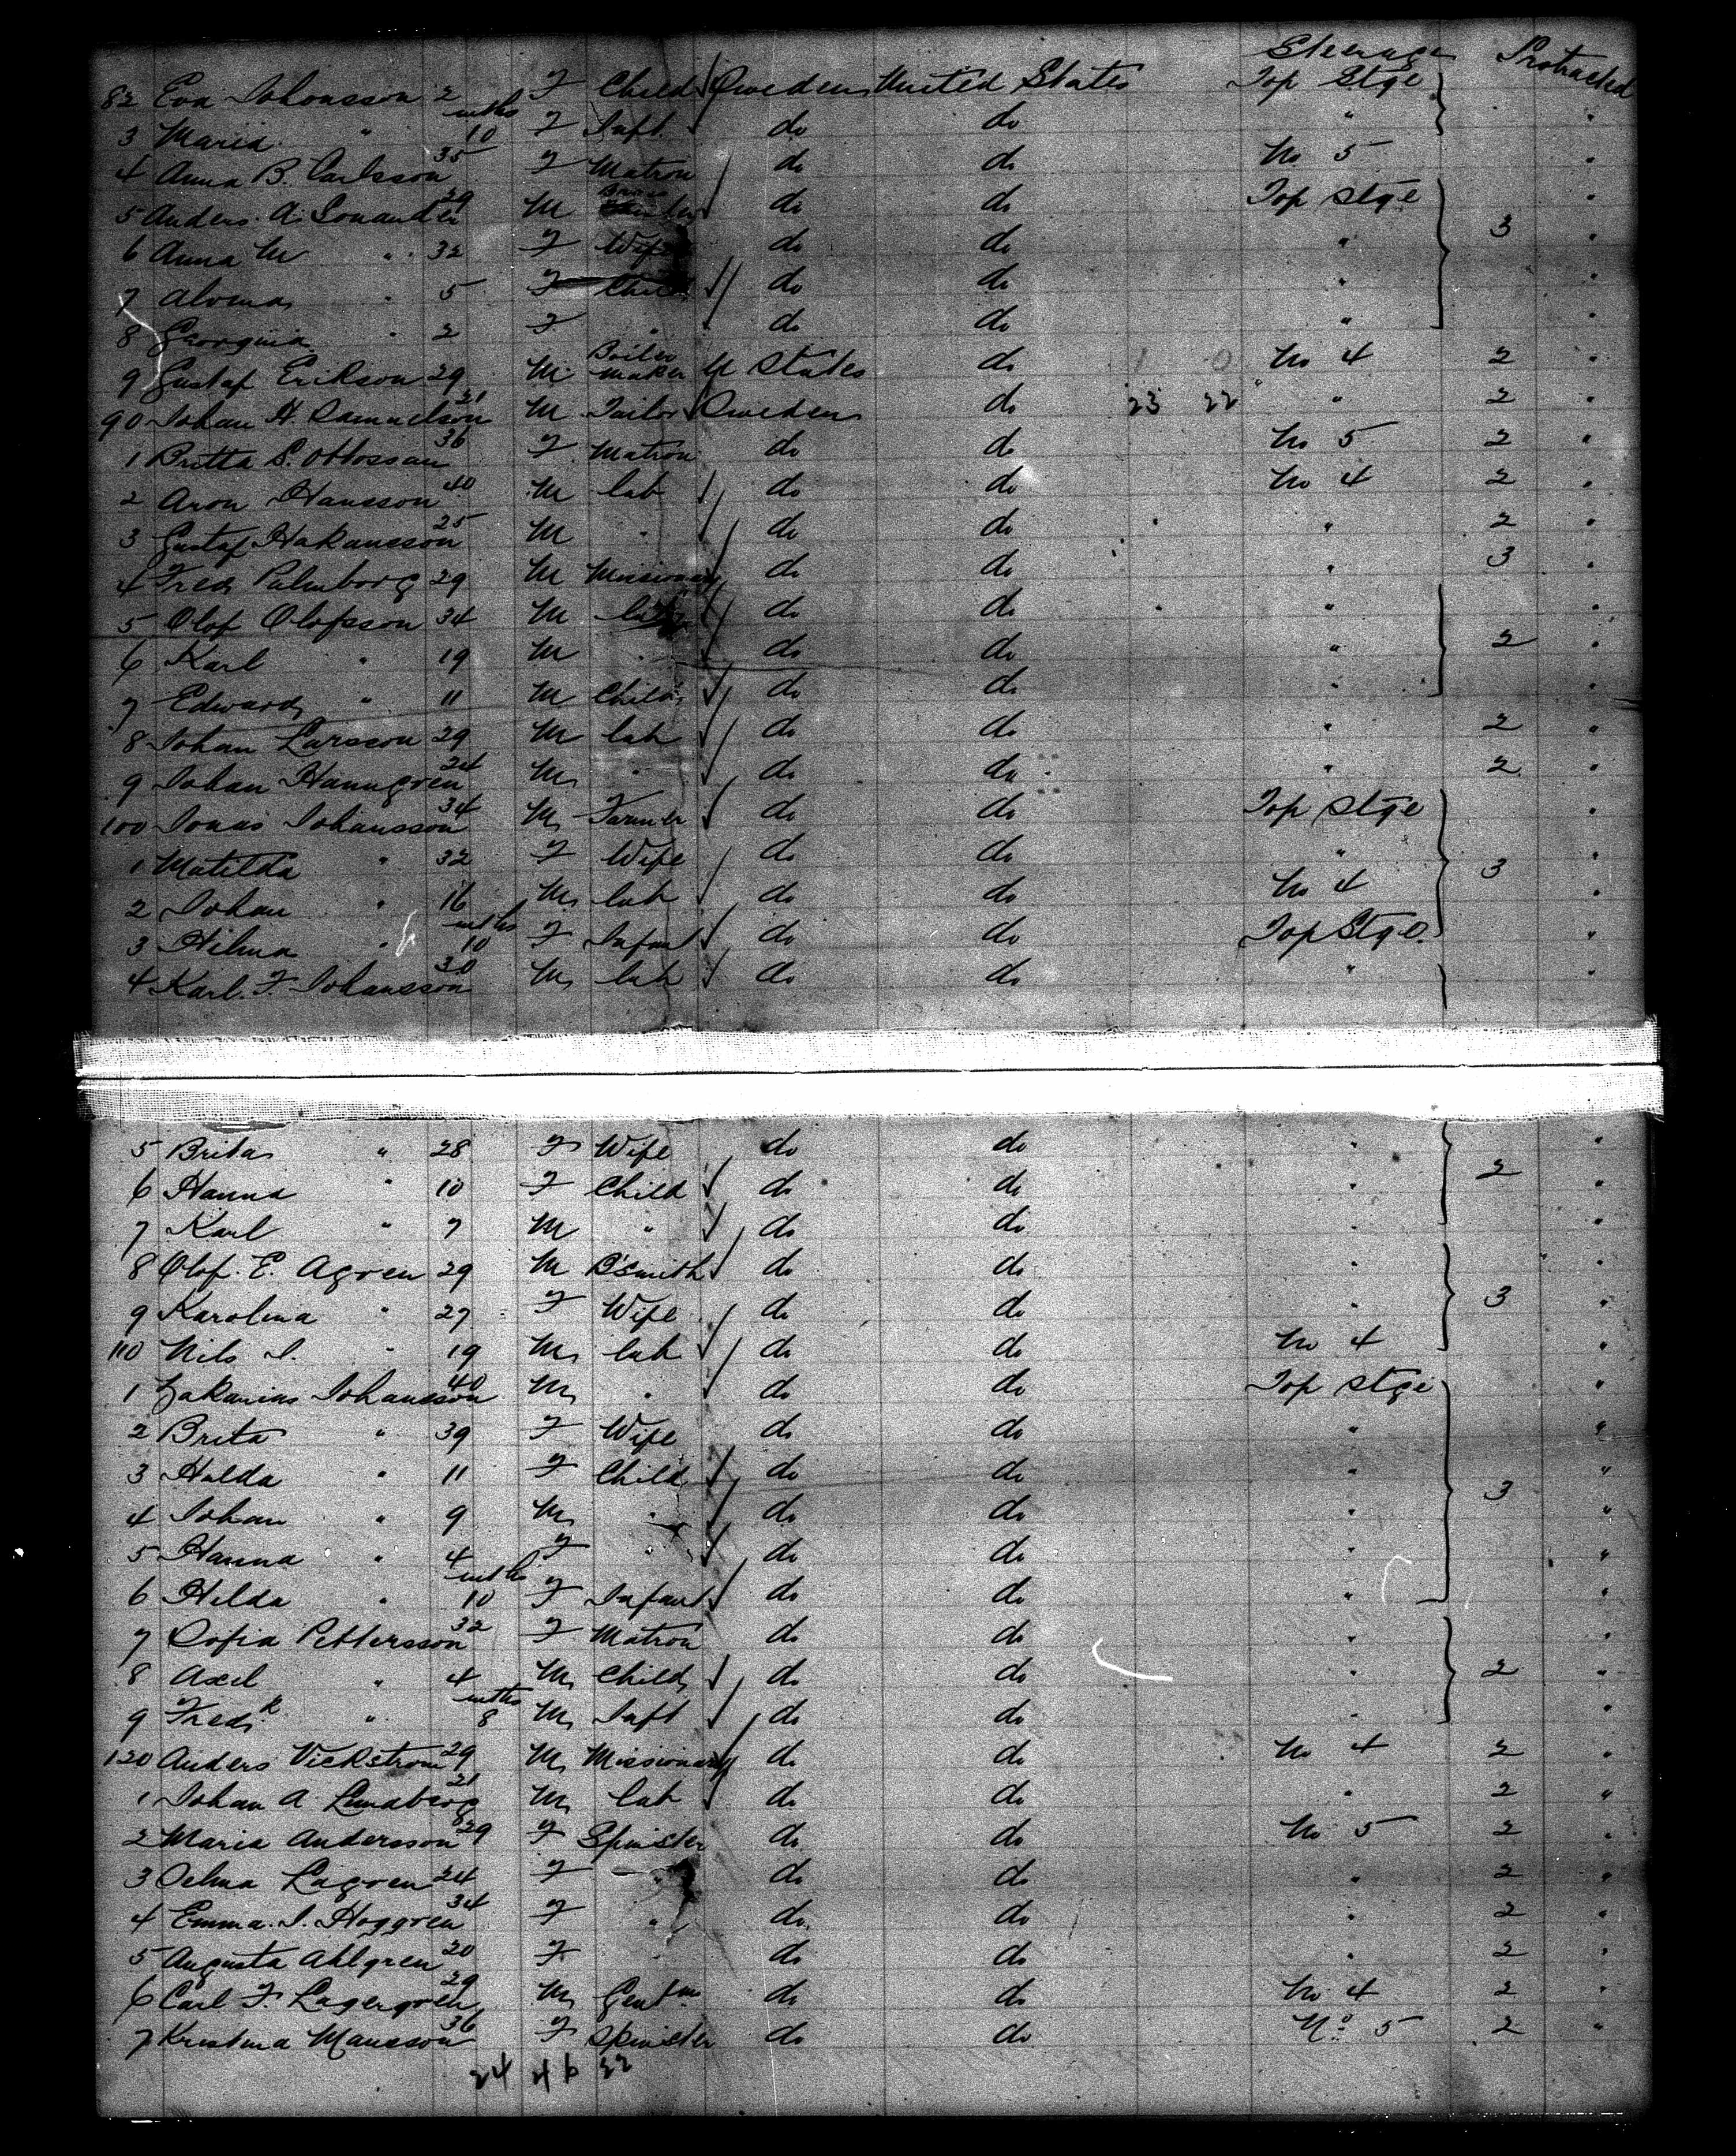 Steerage Protracted
82 Eva Johansson 2 F Child Sweden United States Top Stge
3 Maria " mths 10 F Inft. do do "
4 Anna B. Carlsson 35 F Matron do do No 5 "
5 Anders. A. 39 M do do Top Stge "
6 Anna M " 32 F Wife do do " 3 "
7 " 5 F Child do do " "
8 Georgina " 2 F " do do " "
9 Gustaf Erikson 29 M Boiler maker U States do 1 0 No 4 2 "
90 Johan H. Samuelson 21 M Tailor Sweden do 23 22 " 2 "
1 Britta S. Ottosson 36 F Matron do do No 5 2 "
2 Aron Hansson 40 M lab do do No 4 2 "
3 Gustaf Hakansson 25 M " do do " 2 "
4 Fred Palmborg 29 M Missionary do do " 3 "
5 Olof Olofsson 34 M lab do do " "
6 Karl " 19 M " do do " 2 "
7 Edward " 11 M Child do do " "
8 Johan Larsson 29 M lab do do " 2 "
9 Johan Hanngren 24 M " do do " 2 "
100 Jonas Johansson 34 M Farmer do do Top Stge "
1 Matilda " 32 F Wife do do " 3 "
2 Johan " 16 M lab do do No 4 "
3 Hilma " mths 10 F Infant do do Top Stge. "
4 Karl. F. Johansson 30 M lab do do "
5 Brita " 28 F Wife do do " "
6 Hanna " 10 F Child do do " 2 "
7 Karl " 7 M " do do " "
8 Olof. E. Agren 29 M B'smith do do " "
9 Karolina " 27 F Wife do do " 3 "
110 Nils J. " 19 M lab do do No 4 "
1 Zakarias Johansson 40 M " do do Top Stge "
2 Brita " 39 F Wife do do " "
3 Hulda " 11 F Child do do " "
4 Johan " 9 M " do do " 3 "
5 Hanna " 4 F " do do " "
6 Hilda " mths 10 F Infant do do " "
7 Sofia Pettersson 32 F Matron do do " "
8 Axel " 4 M Child do do " 2 "
9 Fredk " mths 8 M Inft do do " "
120 Anders Vickstrom 29 M Missionary do do No 4 2 "
1 Johan A. Lundberg 21 M lab do do " 2 "
2 Maria Andersson 29 F Spinster do do No 5 2 "
3 Selma Lagren 24 F " do do " 2 "
4 Emma. J. Hoggren 34 F " do do " 2 "
5 Augusta Ahlgren 20 F " do do " 2 "
6 Carl F. Lagergren 29 M Gentm do do No 4 2 "
7 Kristina Mansson 36 F Spinster do do No 5 2 "
24 46 22